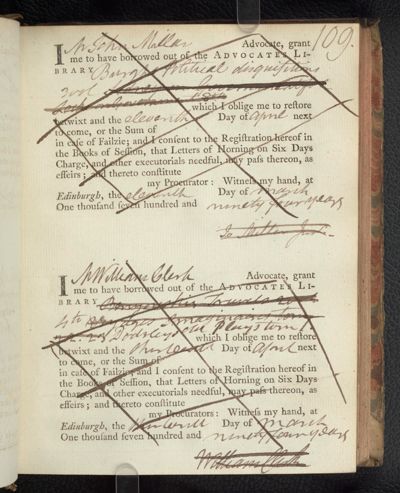 109.
I Mr John Millar Advocate, grant
me to have borrowed out of the ADVOCATES LI-
BRARY Burgh's Political disquisitions
which I oblige me to restore
betwixt and the eleventh Day of April next
to come, or the Sum of
in case of Failzie; and I consent to the Registration hereof in
the Books of Session, that Letters of Horning on Six Days
Charge, and other executorials needful, may pass thereon, as
effeirs; and thereto constitute
my Procurator: Witness my hand, at
Edinburgh, the eleventh Day of March
One thousand seven hundred and ninety four years
I Mr William Clerk Advocate, grant
me to have borrowed out of the ADVOCATES LI-
BRARY
4to
Dodsley's Old Plays tom
which I oblige me to restore
betwixt and the thirteenth Day of April next
to come, or the Sum of
in case of Failzie, and I consent to the Registration hereof in
the Books of Session, that Letters of Horning on Six Days
Charge, and other executorials needful, may pass thereon, as
effeirs; and thereto constitute
my Procurators: Witness my hand, at
Edinburgh, the thirteenth Day of March
One thousand seven hundred and ninety four years
William Clerk